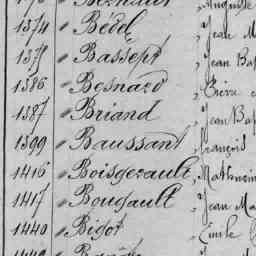 1374 Bédel, Jean M
Bassept, Jean Bap
1386 Besnard
1387 Briand, Jean Bap
1399 Baussant, François
1416 Boisgerault, Mathurin
1417 Bougault, Jean Ma
1440 Bigot, Emile